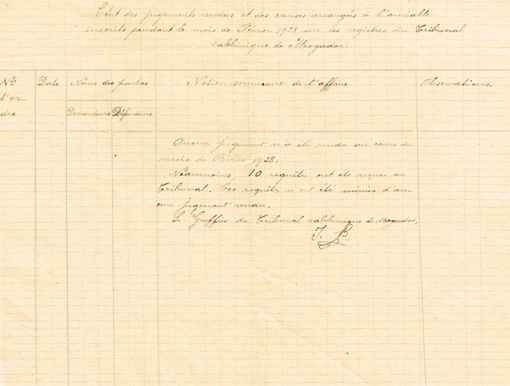 Etat des jugements rendus et des causes arrangés à l'amiable
inscrits pendant le mois de Février 1928 sur les registres du Tribunal
rabbinique de Mogador.
Nos d'or-dre Date Noms des parties Notice sommaire de l'affaire Observations.
Demandeurs Défendeurs
Aucun jugement n'a été rendu au cours du
mois de Février 1928.
Néanmoins, 10 requêtes ont été reçues au
Tribunal. Ces requêtes n'ont été suivies d'au-
cun jugement rendu.
Le Greffier du Tribunal rabbinique de Mogador,